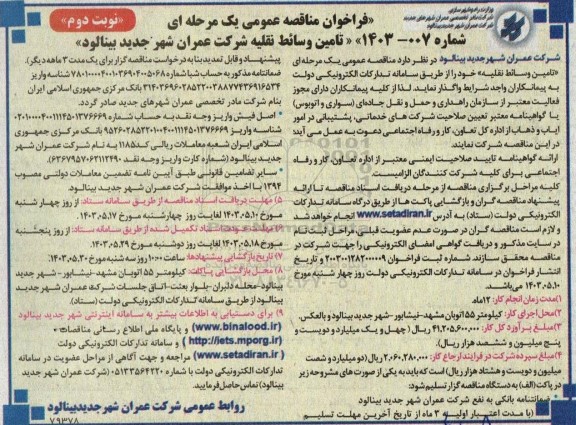 وزارت راه و شهرسازی
شرکت مادر تخصصی عمران شهرهای جدید
شرکت عمران شهر جدید بینالود
«فراخوان مناقصه عمومی یک مرحله ای
«نوبت دوم»
شماره ۰۰۷-۱۴۰۳» « تامین وسائط نقلیه شرکت عمران شهر جدید بینالود»
شرکت عمران شهر جدید بینالود در نظر دارد مناقصه عمومی یک مرحله ای
«تامین وسائط نقلیه» خود را از طریق سامانه تدارکات الکترونیکی دولت
به پیمانکاران واجد شرایط واگذار نماید. لذا از کلیه پیمانکاران دارای مجوز
فعالیت معتبر از سازمان راهداری و حمل و نقل جاده‌ای (سواری و اتوبوس)
یا گواهینامه معتبر تعیین صلاحیت شرکت های خدماتی، پشتیبانی در امور
ایاب و ذهاب از اداره کل تعاون، کار و رفاه اجتماعی دعوت به عمل می آید
در این مناقصه شرکت نمایند.
ارائه گواهینامه تایید صلاحیت ایمنی معتبر از اداره تعاون، کار و رفاه
اجتماعی برای کلیه شرکت کنندگان الزامیست.
کلیه مراحل برگزاری مناقصه از مرحله دریافت اسناد مناقصه تا ارائه
پیشنهاد مناقصه گران و بازگشایی پاکت ها از طریق درگاه سامانه تدارکات
الکترونیکی دولت (ستاد) به آدرس www.setadiran.ir انجام خواهد شد
و لازم است مناقصه گران در صورت عدم عضویت قبلی، مراحل ثبت نام
در سایت مذکور و دریافت گواهی امضای الکترونیکی را جهت شرکت در
مناقصه محقق سازند. شماره ثبت فراخوان ۲۰۰۳۰۰۱۲۸۲۰۰۰۰۰۹ و تاریخ
انتشار فراخوان در سامانه تدارکات الکترونیکی دولت روز چهار شنبه مورخ
۱۴۰۳.۰۵.۱۰ می‌باشد.
۱) مدت زمان انجام کار: ۱۲ماه.
۲) محل اجرای کار: کیلومتر ۵۵ اتوبان مشهد-نیشابور-شهر جدید بینالود و بالعکس.
۳) مبلغ برآورد کل کار: ۴۱.۲۰۵.۶۰۰.۰۰۰ ریال ( چهل و یک میلیارد و دویست و
پنج میلیون و ششصد هزار ریال).
۴) مبلغ سپرده شرکت در فرایند ارجاع کار: ۲.۰۶۰.۲۸۰.۰۰۰ ریال (دو میلیارد و شصت
میلیون و دویست و هشتاد هزار ریال) است که باید به یکی از صورت های مشروحه زیر
در پاکت (الف) به دستگاه مناقصه گزار تسلیم شود:
- ضمانتنامه بانکی به نفع شرکت عمران شهر جدید بینالود
(با مدت اعتبار اولیه ۳ ماه از تاریخ آخرین مهلت تسلیم
پیشنهاد و قابل تمدید بنا به درخواست مناقصه گزار برای یک مدت ۳ ماهه دیگر).
بانک مرکزی جمهوری اسلامی ایران
بنام شرکت مادر تخصصی عمران شهرهای جدید صادر گردد.
- اصل فیش واریز وجه نقد به حساب شماره
بانک مرکزی جمهوری
اسلامی ایران شعبه معاملات ریالی کد ۱۱۸۵ به نام شرکت عمران شهر
جدید بینالود (شماره کارت واریز وجه نقد ۶۳۶۷۹۵۷۰۶۳۱۳۴۹۰).
- سایر تضامین قانونی طبق آیین نامه تضمین معاملات دولتی مصوب
۱۳۹۴ با اخذ موافقت شرکت عمران شهر جدید بینالود.
۵) مهلت دریافت اسناد مناقصه از طریق سامانه ستاد: از روز چهار شنبه
مورخ ۱۴۰۳.۰۵.۱۰ لغایت روز چهارشنبه مورخ ۱۴۰۳.۰۵.۱۷
۶) مهلت عودت اسناد تکمیل شده از طریق سامانه ستاد: از روز پنجشنبه
مورخ ۱۴۰۳.۰۵.۱۸ لغایت روز دوشنبه مورخ ۱۴۰۳.۰۵.۲۹
۷) تاریخ بازگشایی پیشنهادها: ساعت ۱۰:۰۰ روز سه شنبه مورخ ۱۴۰۳.۰۵.۳۰
۸) محل بازگشایی پاکات: کیلومتر ۵۵ اتوبان مشهد-نیشابور - شهر جدید
بینالود-محله دلبران-بلوار بعثت-اتاق جلسات شرکت عمران شهر جدید
بینالود از طریق سامانه تدارکات الکترونیکی دولت (ستاد).
۹) برای دستیابی به اطلاعات بیشتر به سامانه اینترنتی شهر جدید بینالود
(www.binalood.ir) و پایگاه ملی اطلاع رسانی مناقصات
(http://iets.mporg.ir) و سامانه تدارکات الکترونیکی دولت
(www.setadiran.ir) مراجعه و جهت آگاهی از مراحل عضویت در سامانه
تدارکات الکترونیکی دولت با شماره ۰۵۱۳۳۵۶۴۲۲۰ (شرکت عمران شهر جدید
بینالود) تماس حاصل فرمایید.
روابط عمومی شرکت عمران شهر جدید بینالود
۷۹۳۷۸